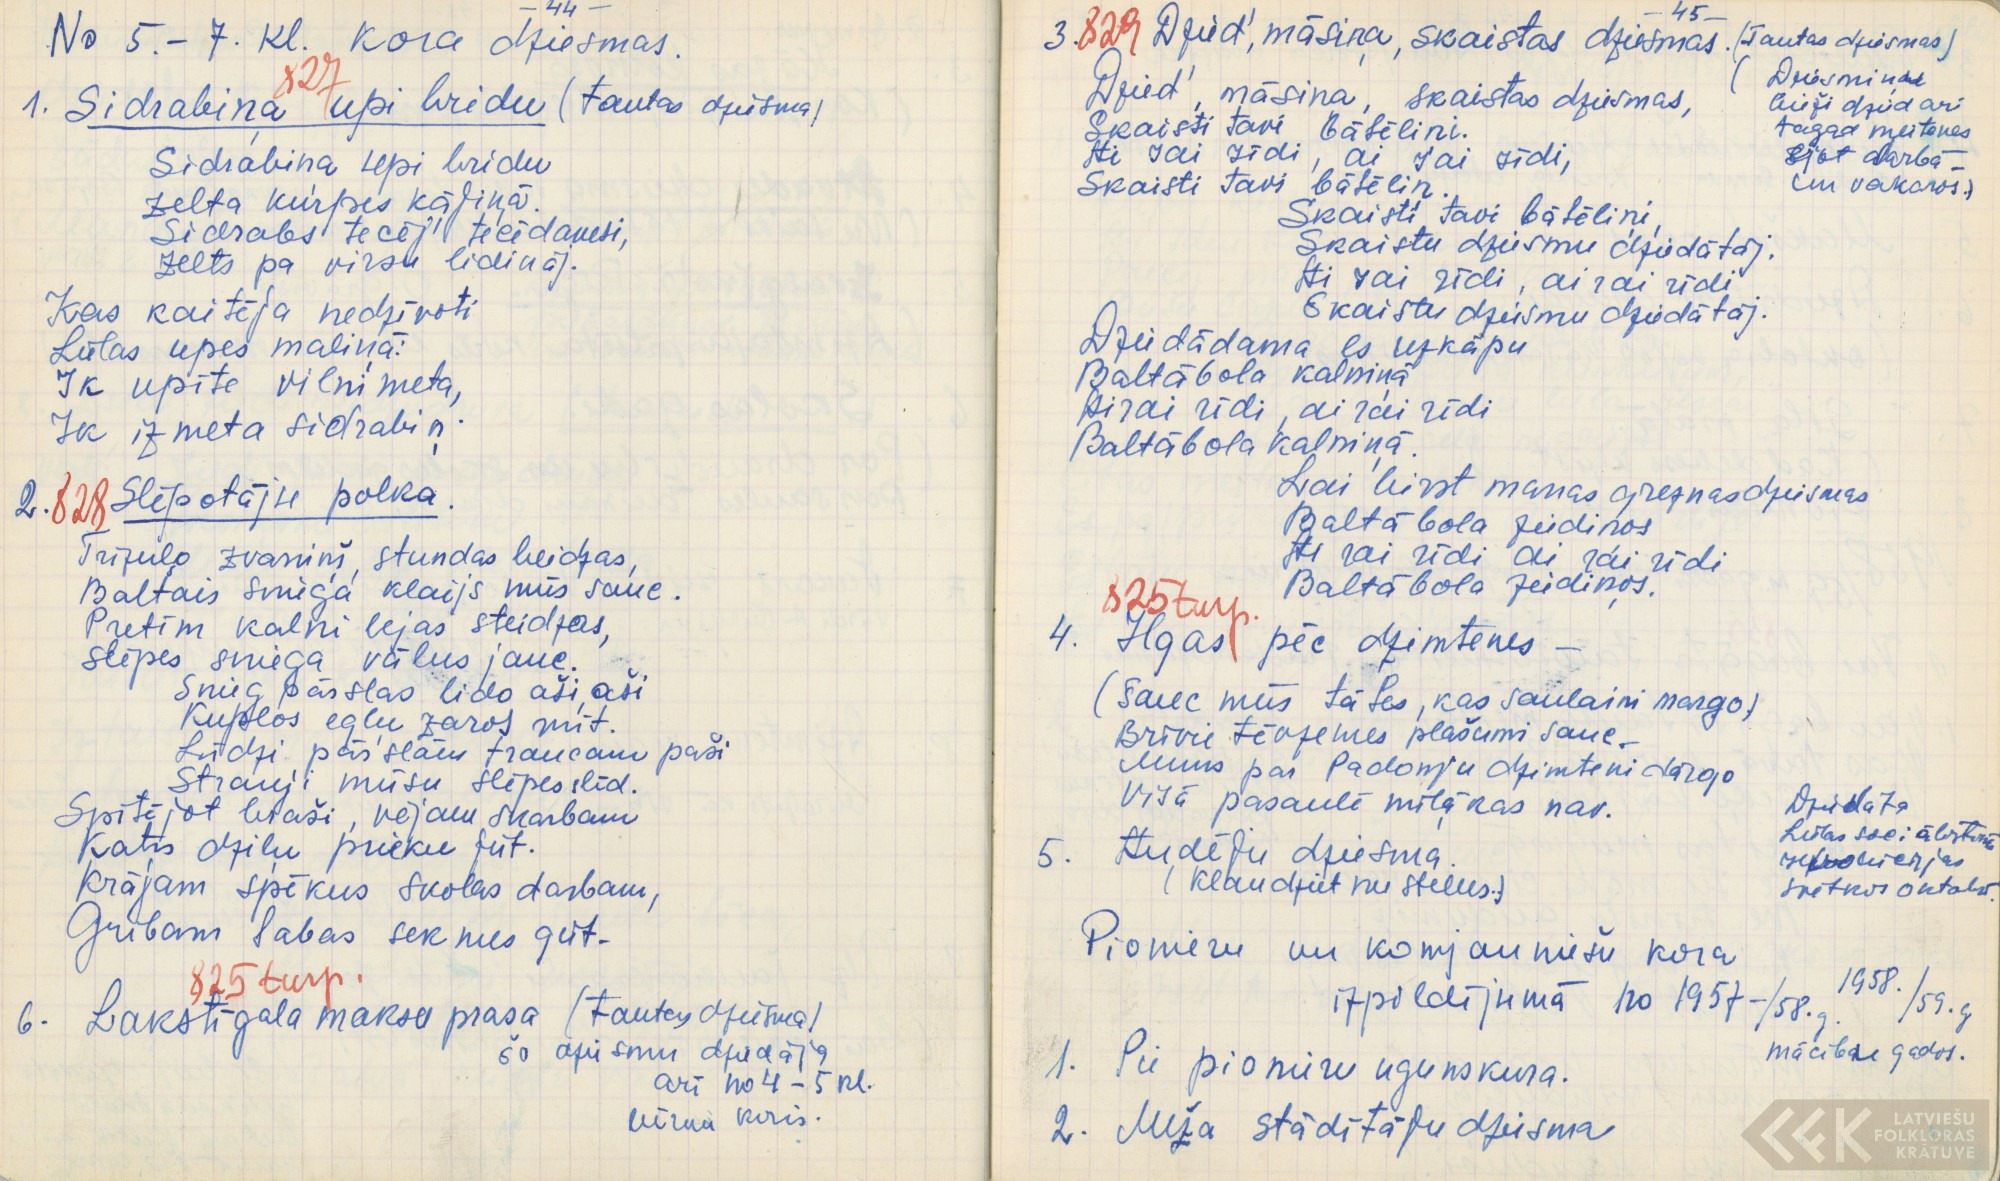 -44-
No 5.-7. kl. kora dziesmas.
827
1. Sidrabiņa upi bridu (tautas dziesma)
Sidrabiņa upi bridu
Zelta kurpes kājiņā.
Sidrabs tecēj' tecēdamsi,
Zelts pa virsu lidināj.
Kas kaitēja nedzīvoti
Lielas upes maliņā:
Ik upīte vilni meta,
Ik izmeta sidrabiņ.
2. 828 Slēpotāju polka.
Trizuļo zvaniņš, stundas beidzas,
Baltais sniega klaijs mūs sauc.
Pretim kalni lejas steidzas,
Slēpes sniega vālus jauc.
Sniegpārslas lido aši, aši
Kuplos egļu zaros mīt.
Līdzi pārslām traucam paši
Strauji mūsu slēpes slīd.
Spītējot braši, vējam skarbam
Katrs dziļu prieku jūt.
Krājam spēkus skolas darbam,
Gribam labas sekmes gūt-
825 turp.
6. Lakstīgala maksu prasa (tautas dziesma)
šo dziesmu dziedāja
arī no 4-5 kl.
bērnu koris.
-45-
3. 829 Dzied', māsiņa, skaistas dziesmas. (Tautas dziesmas)
Dzied', māsiņa, skaistas dziesmas,
Skaisti tavi bāleliņi.
Ai rai rīdi, ai rai rīdi,
Skaisti tavi bāleliņ.
(Dziesmiņu
bieži dzied arī
tagad meitenes
ejot darbā-
un vakaros.)
Skaisti tavi bāleliņi,
Skaistu dziesmu dziedātāj.
Ai rai rīdi, ai rai rīdi
Skaistu dziesmu dziedātāj.
Dziedādama es uzkāpu
Baltābola kalniņā
Ai rai rīdi, ai rai rīdi
Baltābola kalniņā.
Lai birst manas greznas dziesmas
Baltābola ziediņos
Ai rai rīdi ai rai rīdi
Baltābola ziediņos.
825 turp.
4. Ilgas pēc dzimtenes -
(Sauc mūs tāles, kas saulaini margo)
Brīvie tēvzemes plašumi sauc-
Mums par Padomju dzimteni dārgo
Visā pasaulē mīļākas nav.
5. Audēju dziesma.
(Klaudziet nu stelles.)
Dziedāta
Lielās sociālistiskās
revolūcijas
svētkos oktobrī.
Pionieru un komjauniešu kora
izpildījumā no 1957-/58.g. 1958./59.g
mācības gados.
1. Pie pionieru ugunskura.
2. Meža stādītāju dziesma
LATVIEŠU
FOLKLORAS
KRĀTUVE